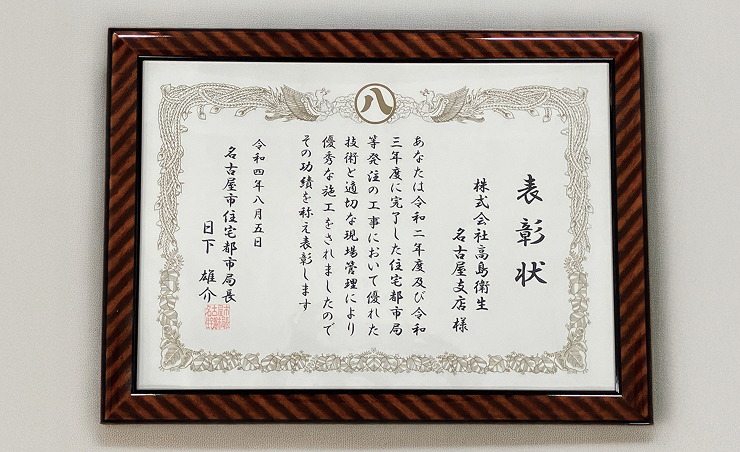 八
表彰状
株式会社高島衛生
名古屋支店 様
あなたは令和二年度及び令和
三年度に完了した住宅都市局
等発注の工事において優れた
技術と適切な現場管理により
優秀な施工をされましたので
その功績を称え表彰します
令和四年八月五日
名古屋市住宅都市局長
日下 雄介